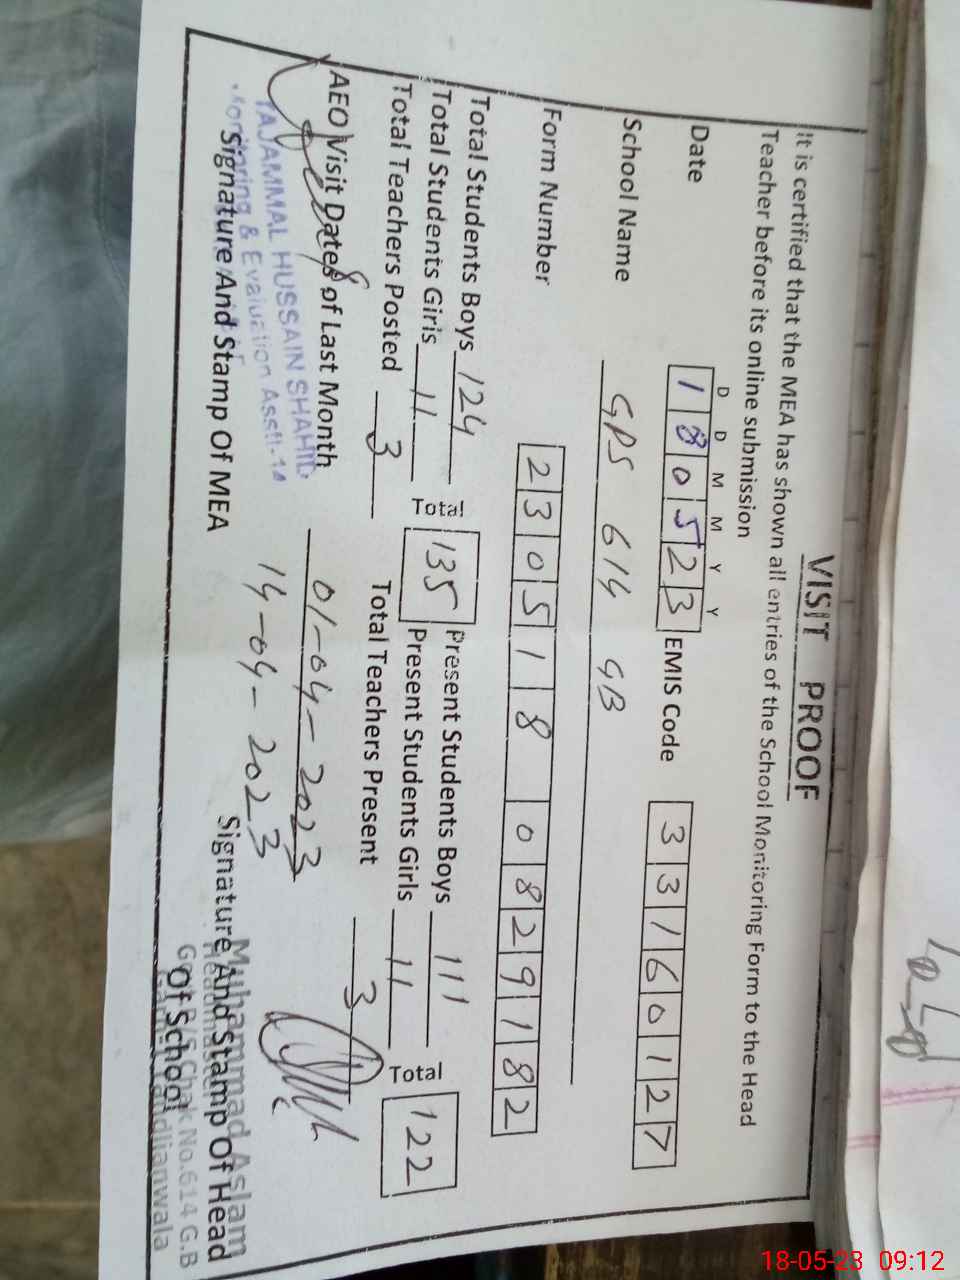 VISIT PROOF
It is certified that the MEA has shown all entries of the School Monitoring Form to the Head
Teacher before its online submission
D D M M Y Y
Date 1 8 0 5 2 3 EMIS Code 3 3 1 6 0 1 2 7
School Name GPS 614 GB
Form Number 2 3 0 5 1 8 0 8 2 9 1 8 2
Total Students Boys 124 Total 135 Present Students Boys 111 Total 122
Total Students Girls 11 Present Students Girls 11
Total Teachers Posted 3 Total Teachers Present 3
AEO Visit Dates of Last Month 01-04-2023
14-04-2023
TAJAMMAL HUSSAIN SHAHID
Monitoring & Evaluation Asstt.
Signature And Stamp Of MEA
Signature And Stamp Of Head
Of School
Muhammad Aslam
Chak No.614 G.B
18-05-23 09:12